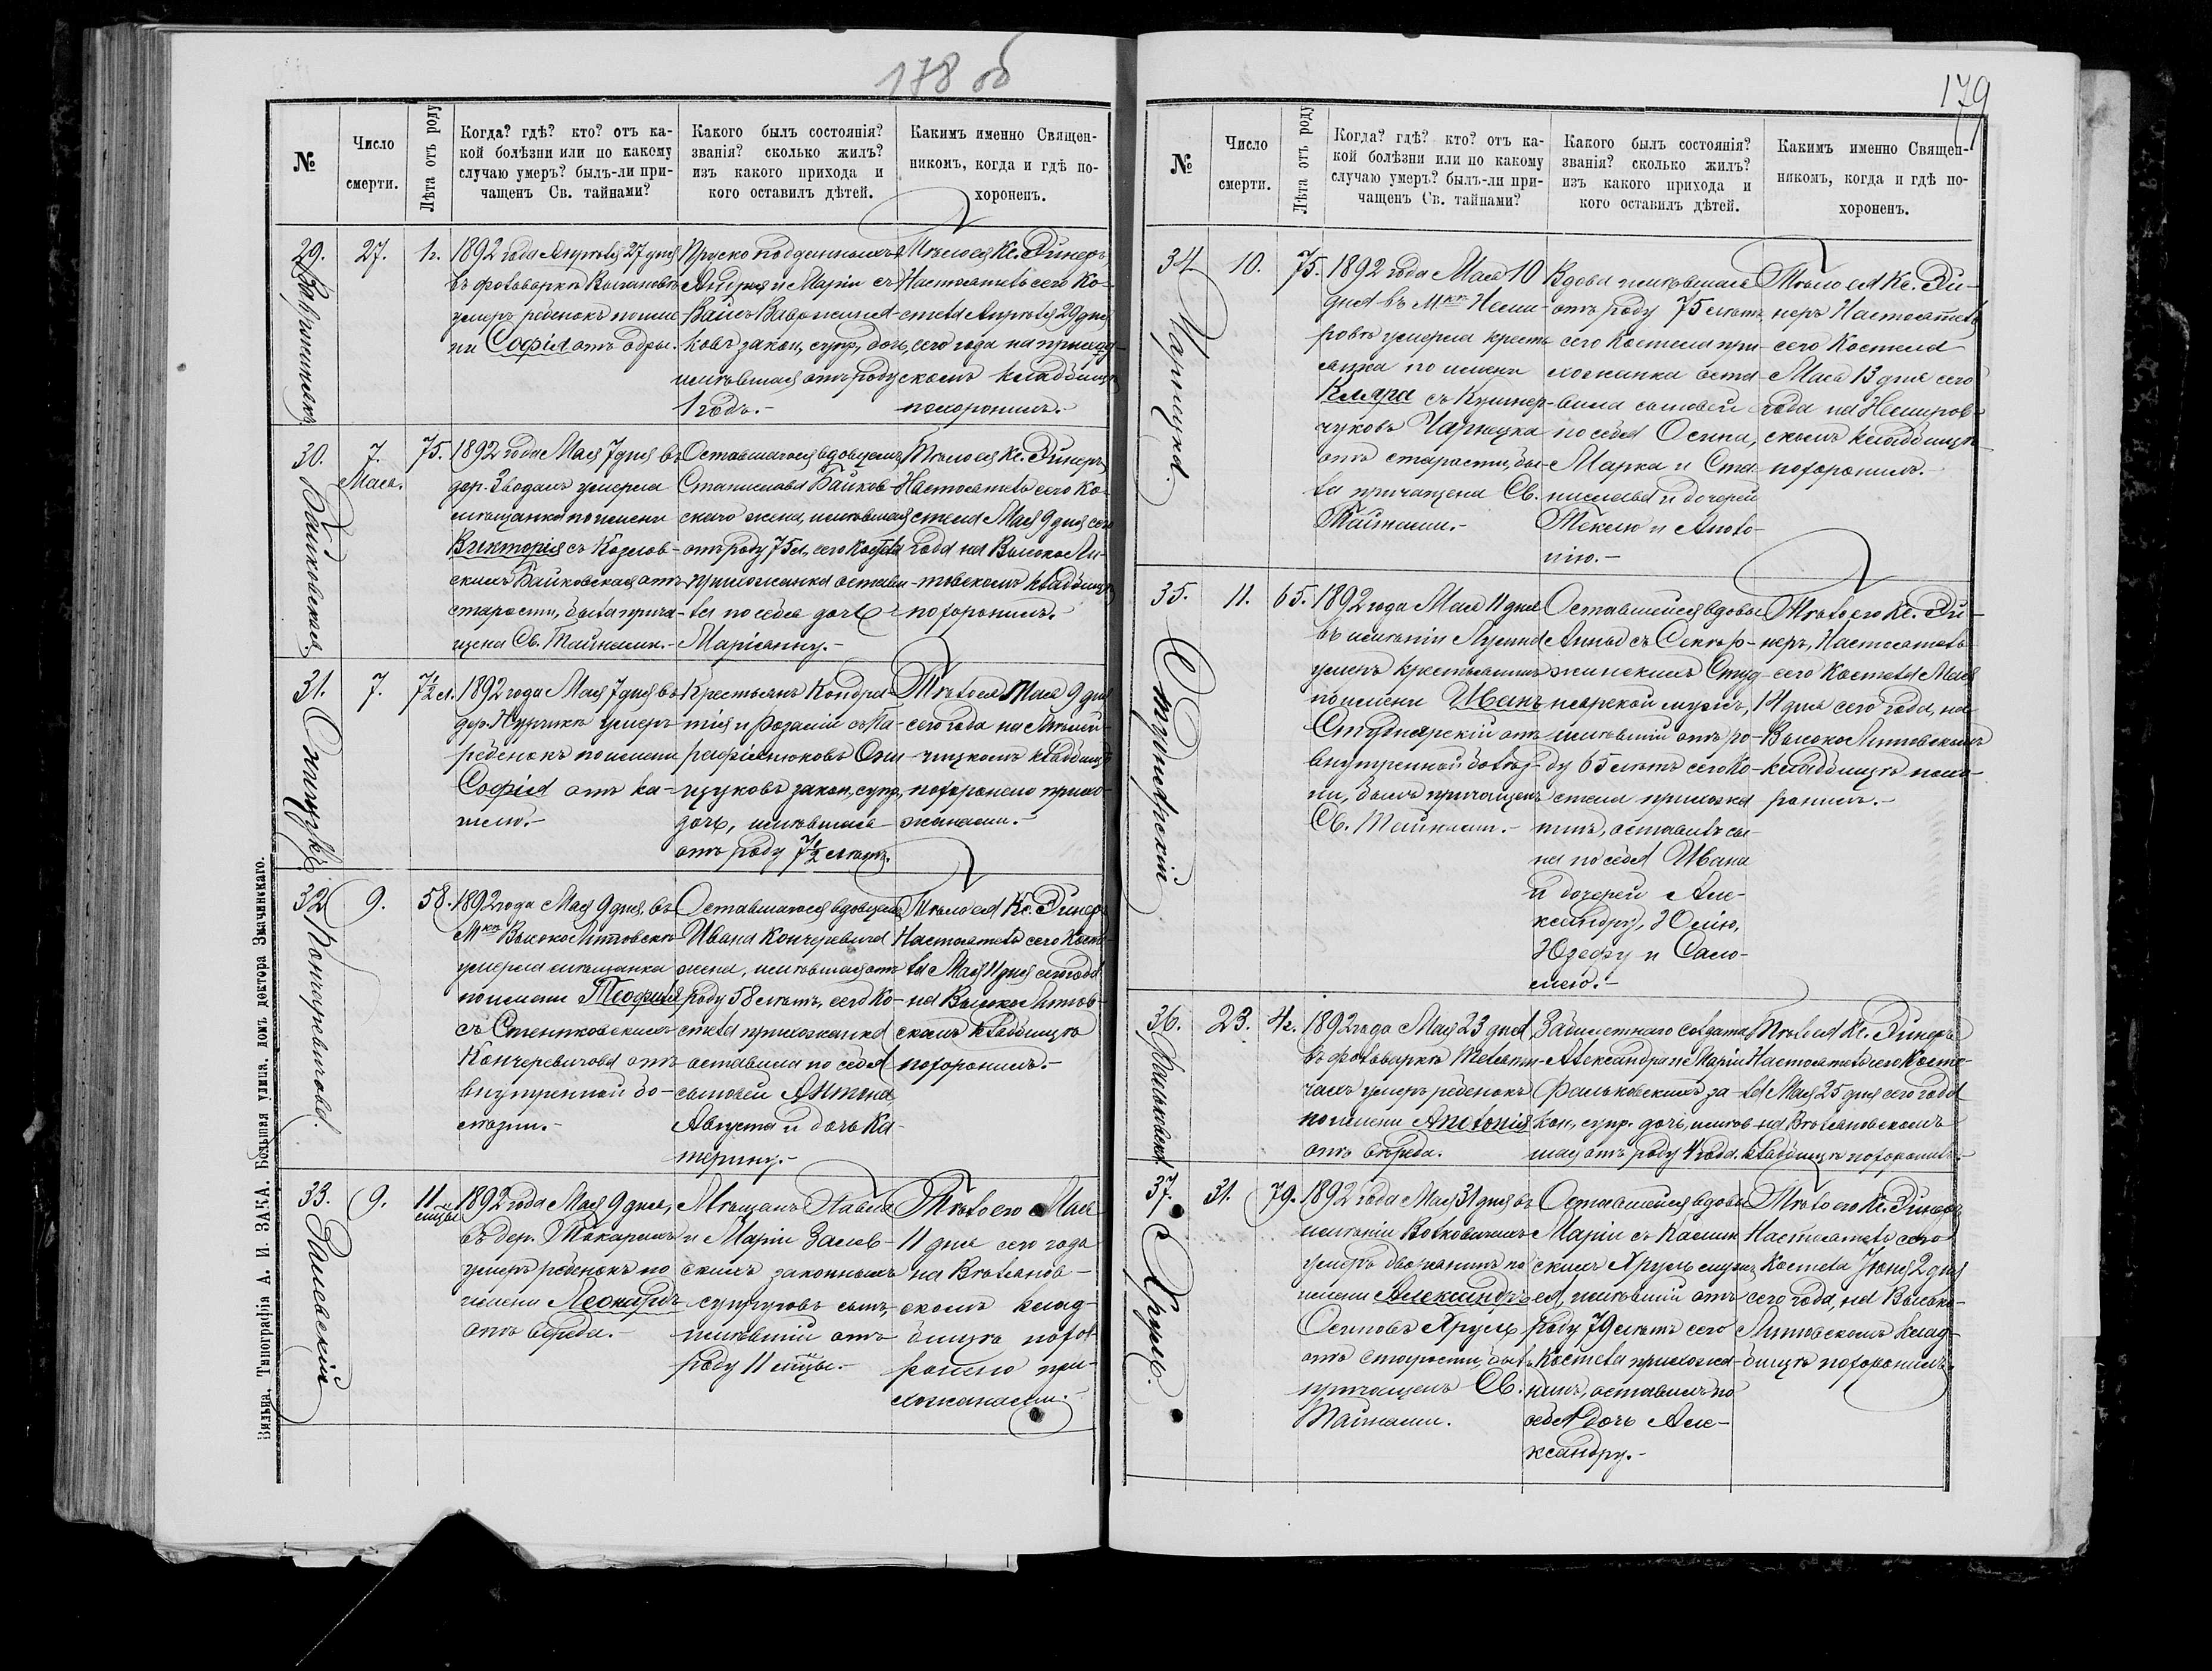 178 об
№
Число
смерти.
Лѣта отъ роду
Когда? гдѣ? кто? отъ ка-
кой болѣзни или по какому
случаю умеръ? былъ-ли при-
чащенъ Св. тайнами?
Какого былъ состоянія?
званія? сколько жилъ?
изъ какого прихода и
кого оставилъ дѣтей.
Какимъ именно Священ-
никомъ, когда и гдѣ по-
хороненъ.
29.
27.
1 г.
1892 года Апрѣля 27 дня
въ фольваркѣ
умеръ ребенокъ по име
ни Софія отъ одры.
Пруско подданныхъ
Андрея и Маріи съ
Вавржиня
ковъ закон. супр. дочь,
имѣвшая отъ роду
1 годъ.-
Тѣло ея Кс. Гинеръ
Настоятель сего Ко-
стела Апрѣля 29 дня
сего года на приход
скомъ кладбищѣ
похоронилъ.-
30. Байковская
7.
Мая.
75.
1892 года Мая 7 дня въ
дер. Зводахъ умерла
мѣщанка по имени
Викторія съ Козлов-
скихъ Байковская отъ
старости, была прича-
щена Св. Тайнами.-
Оставшагося вдовцемъ
Станислава Байков-
скаго жена, имѣвшая
отъ роду 75 л., сего костела
прихожанка остави-
ла по себѣ дочь
Маріанну.-
Тѣло ея Кс. Гинеръ
Настоятель сего Ко-
стела Мая 9 дня сего
года на Высоко Ли-
товскомъ кладбищѣ
похоронилъ.-
31.
7.
7½ л.
1892 года Мая 7 дня въ
умеръ
ребенокъ по имени
Софія отъ ка-
шлю.-
Крестьянъ Кондра-
тія и Розаліи съ Па-
рафіанюковъ
закон. супр.
дочь, имѣвшая
отъ роду 7½ лѣтъ.
Тѣло ея Мая 9 дня
сего года на
кладбищѣ
похоронено прихо-
жанами.-
32. Кончеревичова.
9.
58.
1892 года Мая 9 дня въ
Мкѣ ВысокоЛитовскѣ
умерла мѣщанка
по имени Теофиля
съ Стенпковскихъ
Кончеревичова отъ
внутренной бо-
лѣзни.-
Оставшагося вдовцемъ
Ивана Кончеревича
жена, имѣвшая отъ
роду 58 лѣтъ, сего ко-
стела прихожанка
оставила по себѣ
сыновей Антона,
Августа и дочь Ка-
терину.-
Тѣло ея Кс. Гинеръ
Настоятель сего Косте-
ла Мая 11 дня сего года
на ВысокоЛитов-
скомъ кладбищѣ
похоронилъ.-
33. Залевскій
9.
11
мцы
1892 года Мая 9 дня,
въ дер. Токарахъ
умеръ ребенокъ по
имени Леонардъ
отъ вереда.-
Мѣщанъ Павла
и Маріи Залев-
скихъ законныхъ
супруговъ сынъ,
имѣвшій отъ
роду 11 мцы.-
Тѣло его Мая
11 дня сего года
на Вольянов-
скомъ клад-
бищѣ похо-
ронено при-
хожанами.-
Вильна. Типографія А. И. ЗАКА. Большая улица. домъ доктора Змачинскаго.
179
№
Число
смерти.
Лѣта отъ роду
Когда? гдѣ? кто? отъ ка-
кой болѣзни или по какому
случаю умеръ? былъ-ли при-
чащенъ Св. тайнами?
Какого былъ состоянія?
званія? сколько жилъ?
изъ какого прихода и
кого оставилъ дѣтей.
Какимъ именно Священ-
никомъ, когда и гдѣ по-
хороненъ.
34 Чарнецка.
10.
75.
1892 года Мая 10
дня въ Мкѣ Неми-
ровѣ умерла кресть
янка по имени
Кляра съ Кушнер-
чуковъ Чарнецка
отъ старости, бы-
ла причащена Св.
Тайнами.-
Вдова имѣвшая
отъ роду 75 лѣтъ
сего костела при-
хожанка оста-
вила сыновей
по себѣ Осипа,
Марка и Ста-
нислава и дочерей
Теклю и Аполо-
нію.-
Тѣло ея Кс. Ги-
неръ Настоятель
сего Костела
Мая 13 дня сего
года на Немиров-
скомъ кладбищѣ
похоронилъ.-
35. Студнярскій
11.
65.
1892 года Мая 11 дня
въ имѣніи
умеръ крестьянинъ
по имени Иванъ
Студнярскій отъ
внутренной болѣз-
ни, былъ причащенъ
Св. Тайнами.-
Оставшейся вдовы
Анны съ
жинскихъ Студ-
нярской мужъ,
имѣвшій отъ ро-
ду 65 лѣтъ сего Ко-
стела прихожа
нинъ, оставилъ сы-
на по себѣ Ивана
и дочерей Але-
ксандру, Юлію,
Юзефу и Сало-
мею.-
Тѣло его Кс. Ги-
неръ, Настоятель
сего Костела Мая
14 дня сего года, на
ВысокоЛитовскомъ
кладбищѣ похо-
ронилъ.-
36. Фальковска
23.
4 г.
1892 года Мая 23 дня
въ фольваркѣ
умеръ ребенокъ
по имени Антонія
отъ вереда.
Забилетнаго солдата
Александра и Маріи
Фальковскихъ за-
кон. супр. дочь, имѣв
шая отъ роду 4 года.
Тѣло ея Кс. Гинеръ
Настоятель сего Косте-
ла Мая 25 дня сего года
на Вольяновскомъ
кладбищѣ похоронилъ.-
37. Хруль.
31.
79.
1892 года Мая 31 дня въ
имѣніи Волковичахъ
умеръ дворянинъ по
имени Александръ
Осиповъ Хруль
отъ старости, былъ
причащенъ Св.
Тайнами.
Оставшейся вдовы
Маріи съ Калин
скихъ Хруль мужъ
ея, имѣвшій отъ
роду 79 лѣтъ сего
Костела прихожа-
нинъ, оставилъ по
себѣ дочь Але-
ксандру.-
Тѣло его Кс. Гинеръ
Настоятель сего
Костела Іюня 2 дня
сего года, на Высоко-
Литовскомъ клад-
бищѣ похоронилъ.